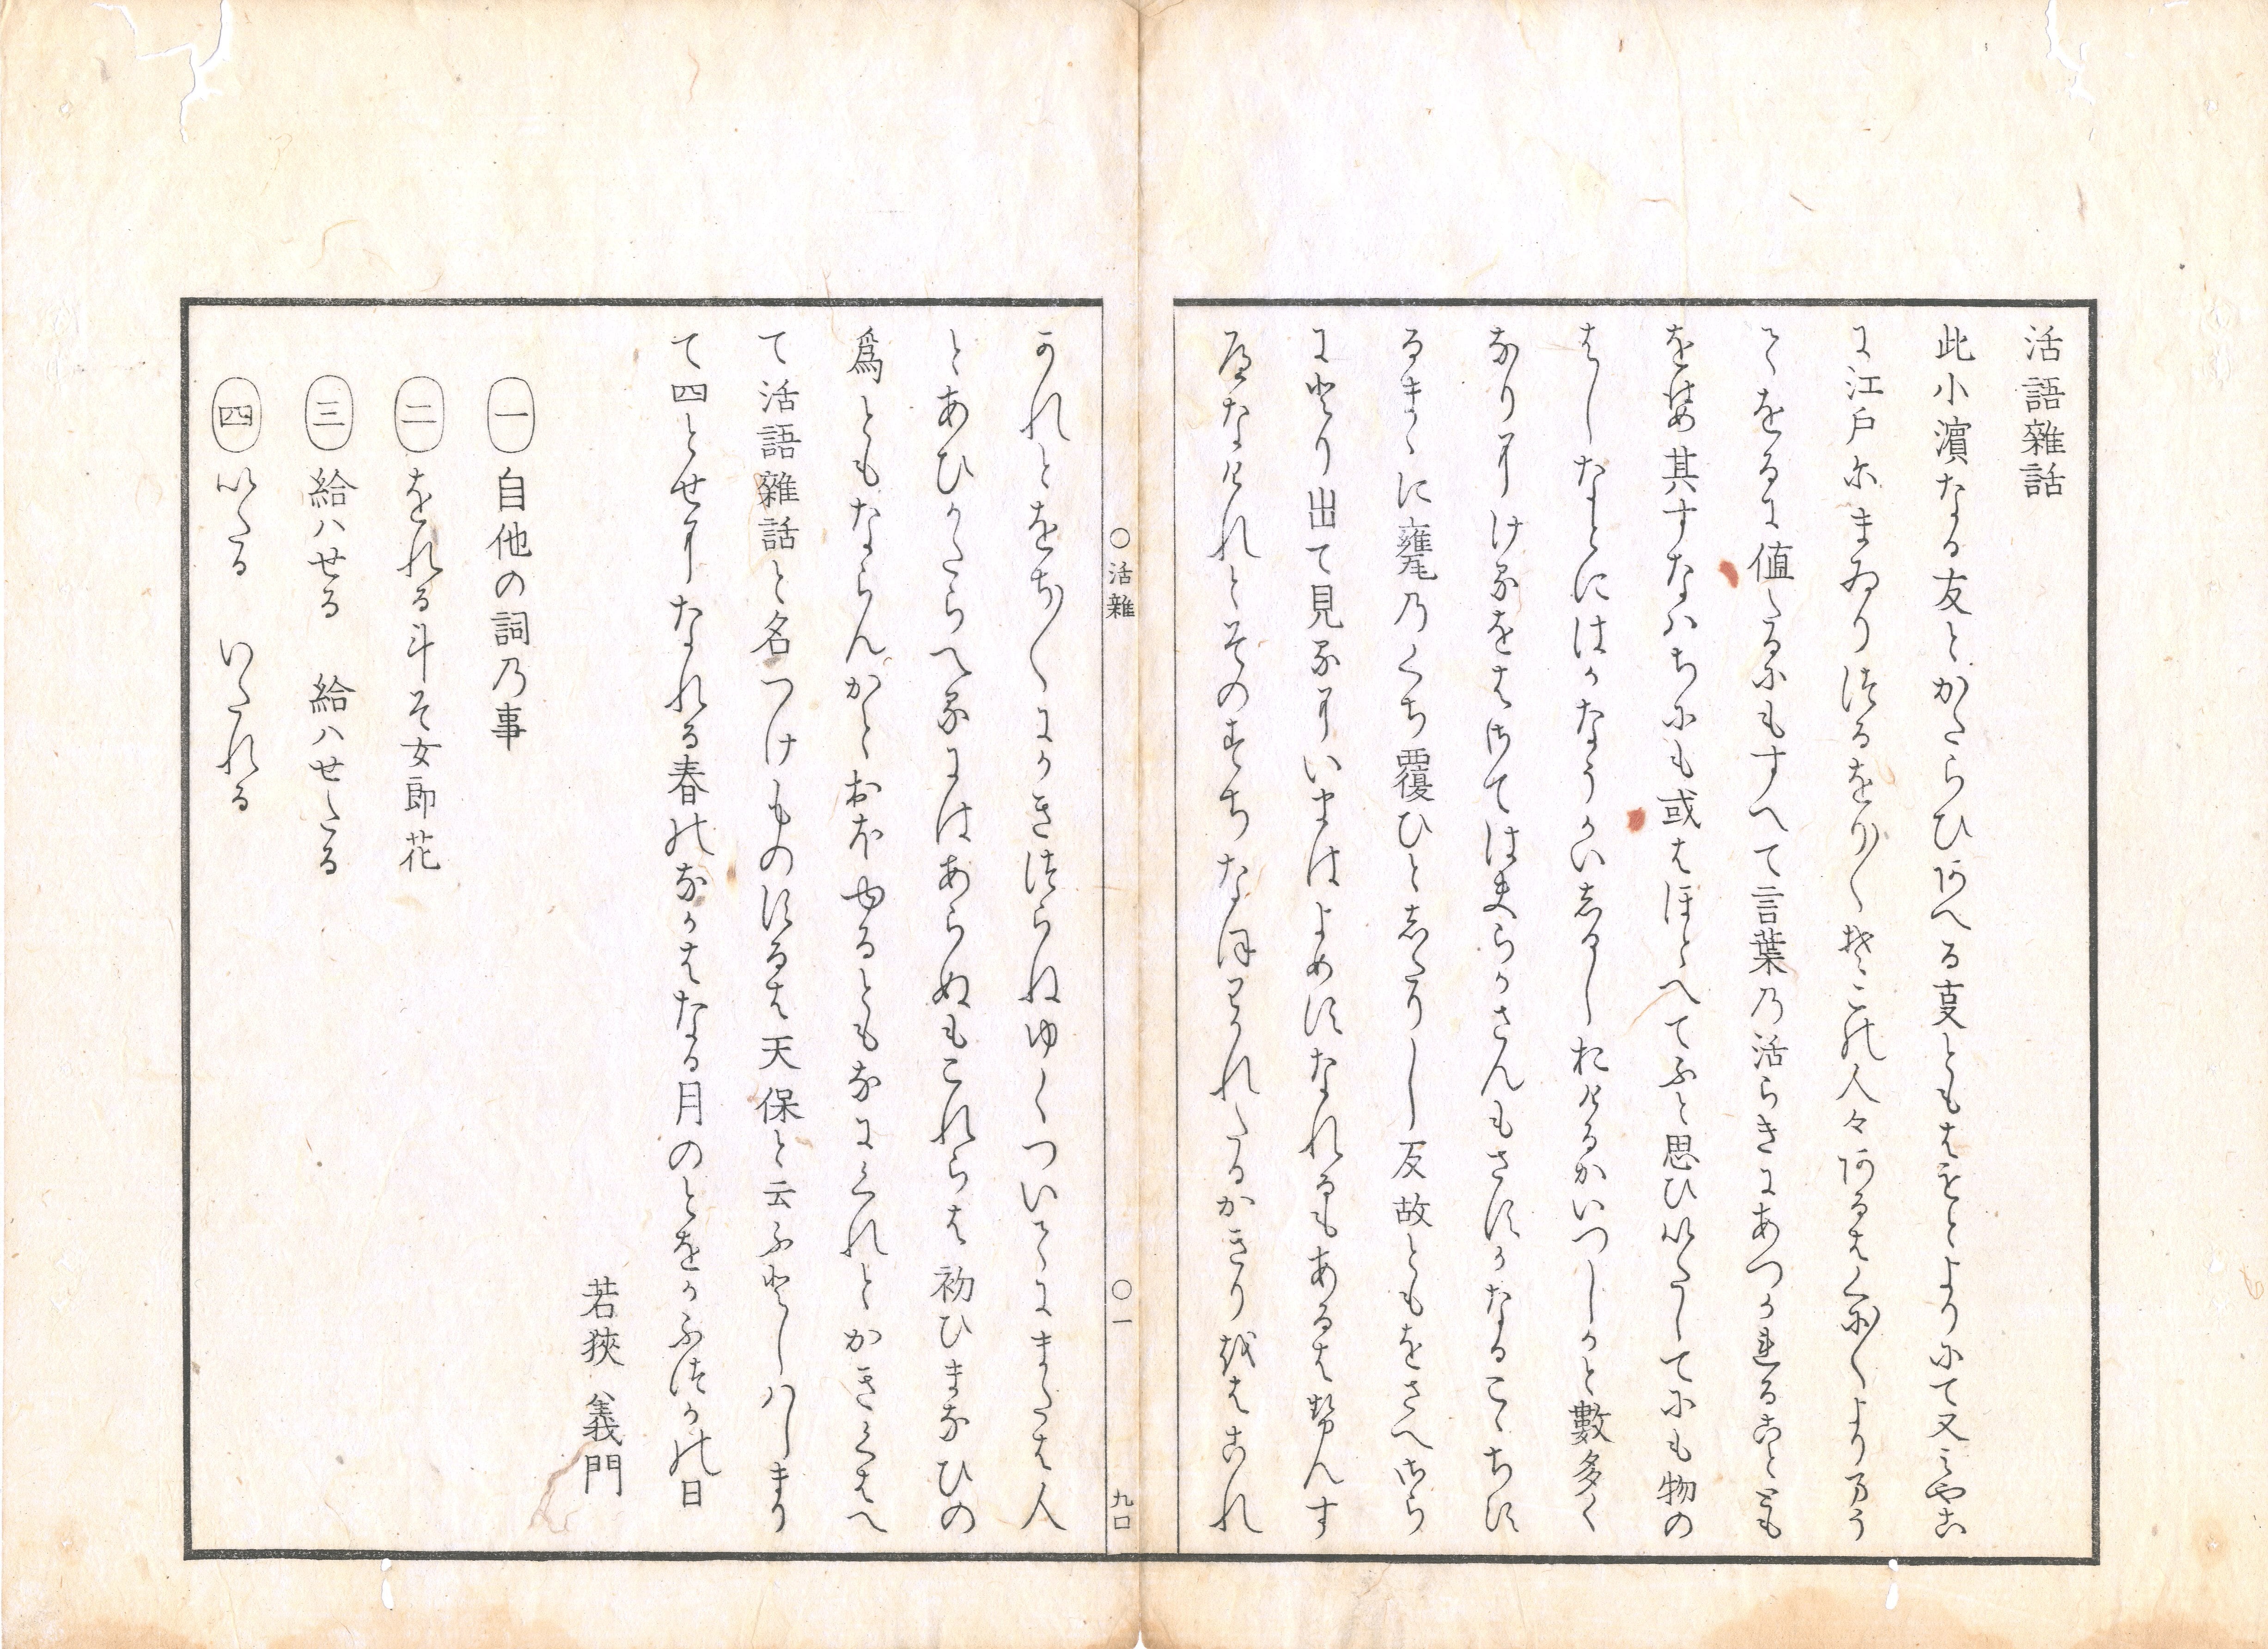 活語雜話
此小濱なる友とかたらひ阿へる叓ともはもとよりにて又みやこ
に江戸尓まゐりつるをり〳〵そここの人々阿るはくに〳〵よりまう
てをるに値たるにもすへて言葉乃活らきにあつかれることとも
をはめ其すなハちにも或はほとへてふと思ひいたしてにも物の
はしなとにはかなうかいしるしおけるかいつしかと數多く
なりにけるをはさては失らかさんもさすかなるこゝちす
るまゝに甕乃くち覆ひとしたりし反故ともをさへさら
にとり出て見るにいまはよめすなれるもあるはせんす
へなけれとそのすちなほわかれたるかきり越はこれ
かれとをち〳〵にかきつらねゆくついてにまたは人
とあひかたらへるにはあらぬもこれらは初ひまなひの
爲ともならんかとおほゆるともなにくれとかきくはへ
て活語雜話と名つけものするは天保と云ふとしハしまり
て四とせになれる春のなかはなる月のとをかふつかの日
若狹 義門
一 自他の詞乃事
二 をれる斗そ女郎花
三 給ハせる 給ハせたる
四 いたる いたれる
○活雜 ○一 九口